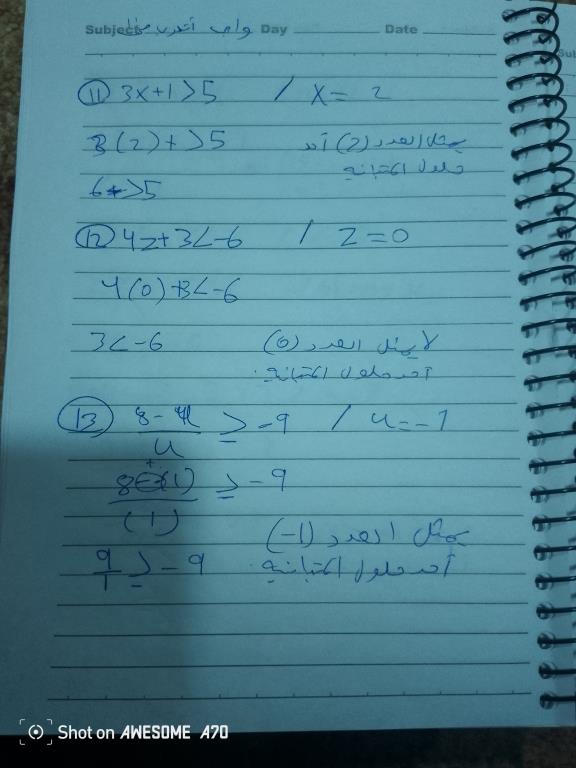 Subject واجب أتدرب صفحة Day Date
(11) 3x+1>5 / x = 2
3(2)+1>5 يمثل العدد (2) أحد
حلول المتباينة
6+>5
(12) 4z+3<-6 / z=0
4(0)+3<-6
3<-6 لا يمثل العدد (0)
أحد حلول المتباينة.
(13) 8-u/u ≥ -9 / u=-1
8-(1)/(1) ≥ -9
يمثل العدد (-1)
9/1 ≥ -9 أحد حلول المتباينة.
Shot on AWESOME A70